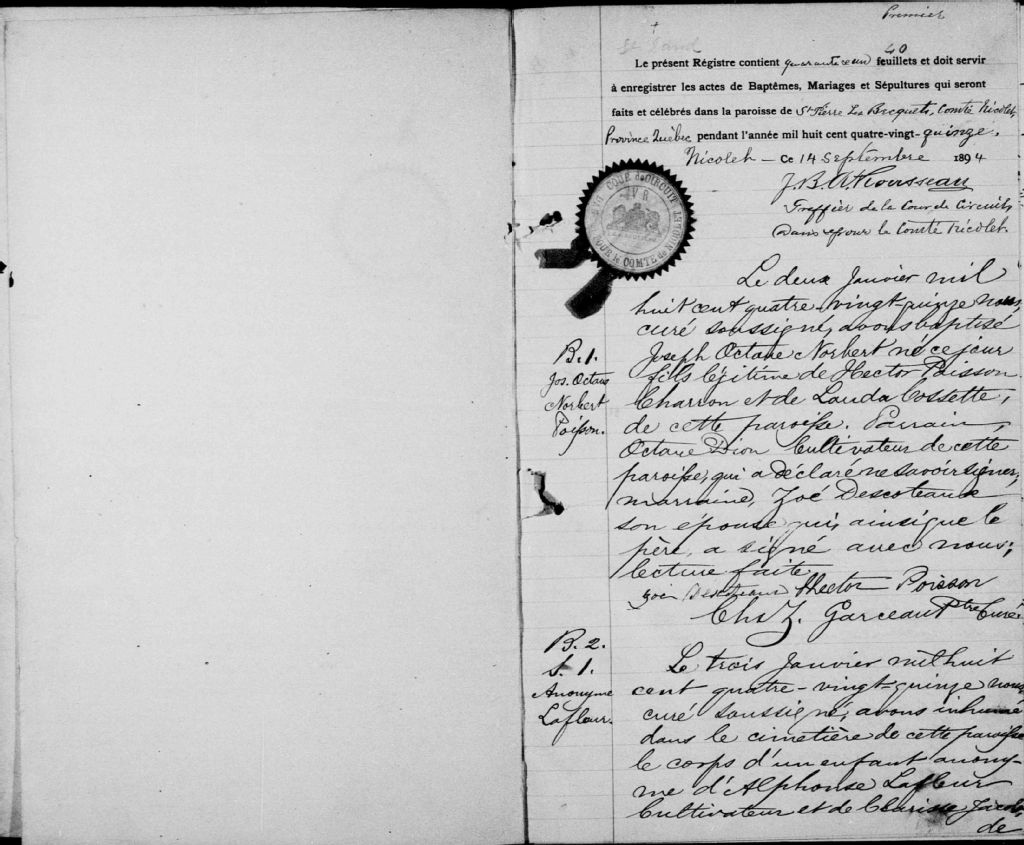 Premier
40
Le présent Régistre contient quarante un feuillets et doit servir
à enregistrer les actes de Baptêmes, Mariages et Sépultures qui seront
faits et célébrés dans la paroisse de St Pierre Les Becquets, Comté Nicolet,
Province Québec pendant l'année mil huit cent quatre-vingt-quinze.
Nicolet - Ce 14 Septembre 1894
Greffier de la Cour de Circuit,
Dans & pour le Comté Nicolet.
COUR de CIRCUIT
VR
COMTE de
Le deux Janvier mil
huit cent quatre-vingt-quinze nous,
curé soussigné, avons baptisé
B. 1.
Jos. Octave
Norbert
Poisson.
Joseph Octave Norbert né ce jour
fils légitime de Hector Poisson
Charron et de Lauda Cossette,
de cette paroisse. Parrain,
Octave Dion Cultivateur de cette
paroisse, qui a déclaré ne savoir signer,
marraine, Zoé Descoteaux
son épouse qui, ainsi que le
père, a signé avec nous;
lecture faite
Zoé Descoteaux Hector Poisson
Chs Z. Garceau Ptre Curé
B. 2.
S. 1.
Anonyme
Lafleur.
Le trois Janvier mil huit
cent quatre-vingt-quinze nous,
curé soussigné, avons inhumé
dans le cimetière de cette paroisse
le corps d'un enfant anony-
me d'Alphonse Lafleur
Cultivateur et de Clarisse
de